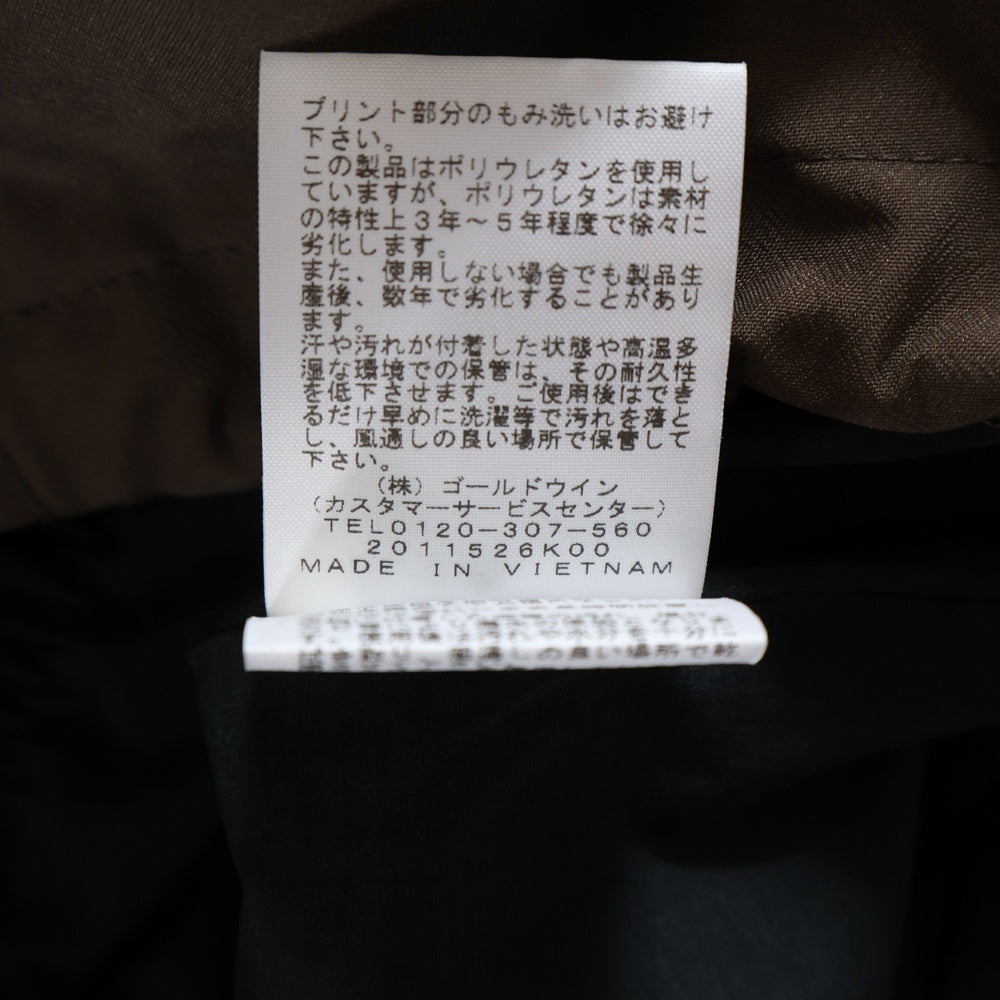 プリント部分のもみ洗いはお避け
下さい。
この製品はポリウレタンを使用し
ていますが、ポリウレタンは素材
の特性上3年～5年程度で徐々に
劣化します。
また、使用しない場合でも製品生
産後、数年で劣化することがあり
ます。
汗や汚れが付着した状態や高温多
湿な環境での保管は、その耐久性
を低下させます。ご使用後はでき
るだけ早めに洗濯等で汚れを落と
し、風通しの良い場所で保管して
下さい。
（株）ゴールドウイン
（カスタマーサービスセンター）
TEL0120-307-560
2011526K00
MADE IN VIETNAM
の良い場所で乾